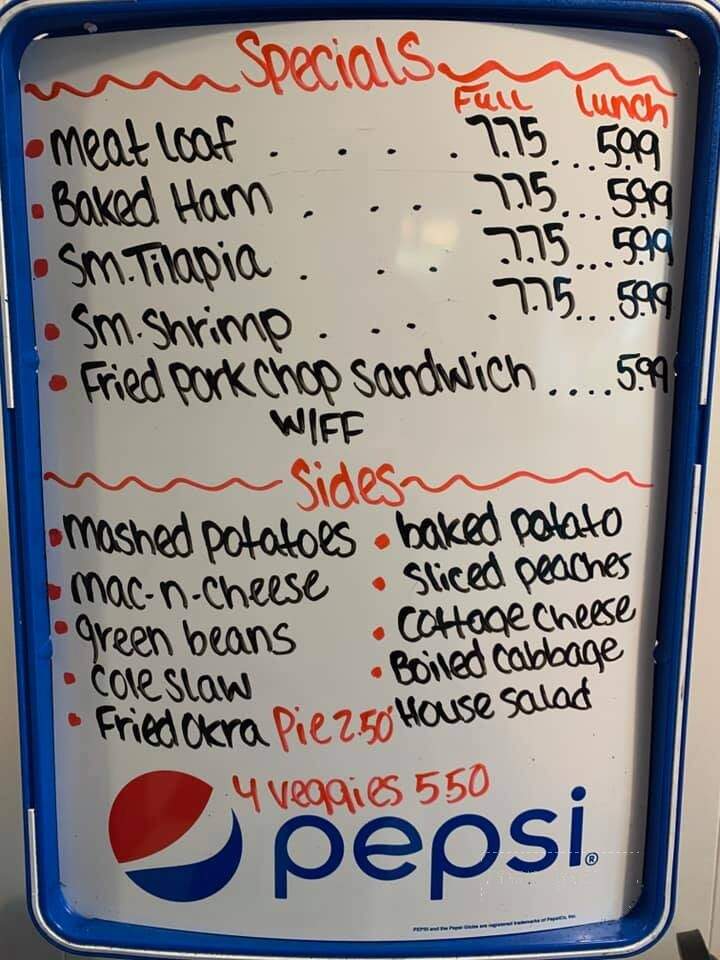 Specials
Full Lunch
• Meat Loaf . . . . . 7.75 ... 5.99
• Baked Ham . . . . 7.75 ... 5.99
• Sm. Tilapia . . . 7.75 ... 5.99
• Sm. Shrimp . . . . 7.75 ... 5.99
• Fried Pork Chop Sandwich .... 5.99
W/FF
Sides
• mashed potatoes • baked potato
• mac-n-cheese • Sliced peaches
• green beans • Cottage Cheese
• Cole slaw • Boiled Cabbage
• Fried Okra Pie 2.50 • House salad
4 veggies 550
pepsi®
PEPSI and the Pepsi Globe are registered trademarks of PepsiCo, Inc.